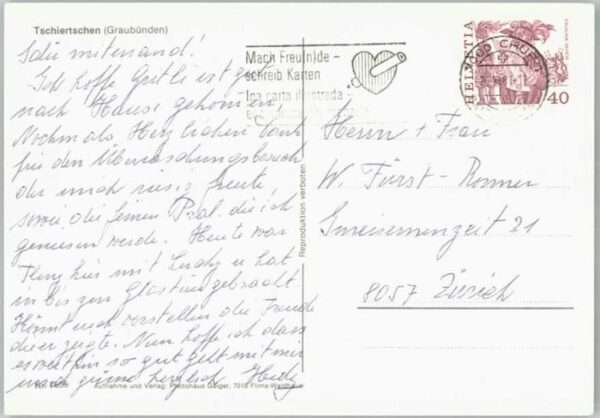 Tschiertschen (Graubünden)
Salü mitenand!
Ich hoffe Gretli ist gut
nach Hause gekommen,
Nochmals Herzlichen Dank
für den Überraschungsbesuch
der mich riesig freute
sowie die feinen Pral. die ich
geniesen werde. Heute war
hier mit er hat
in bis zur gebracht
Könnt euch vorstellen die Freude
die er zeigte. Nun hoffe ich dass
es weithin so gut geht mit mir
und grüsse herzlich Hedy
Aufnahme und Verlag: Photohaus Geiger, 7018 Flims-Waldhaus
Reproduktion verboten
Mach Freu(n)de –
schreib Karten
Ina carta
CHUR
HELVETIA
40
Herrn + Frau
W. Fürst-Romer
21
8057 Zürich